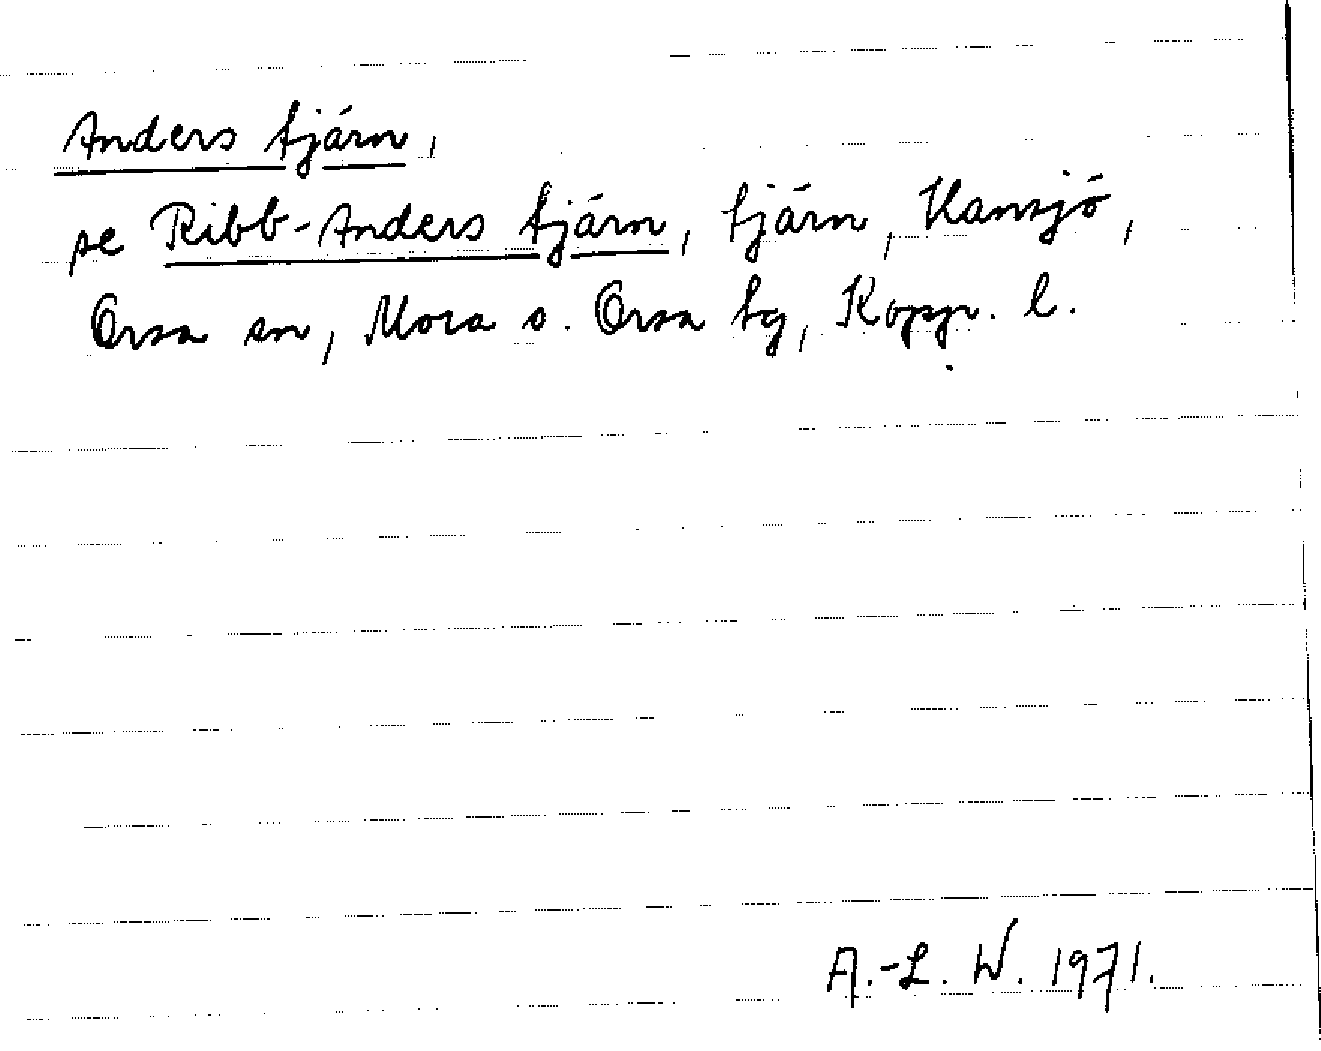 Anders tjärn,
se Ribb-Anders tjärn, tjärn, Hansjö,
Orsa sn, Mora o. Orsa tg, Kopp. l.
A.-L. W. 1971.